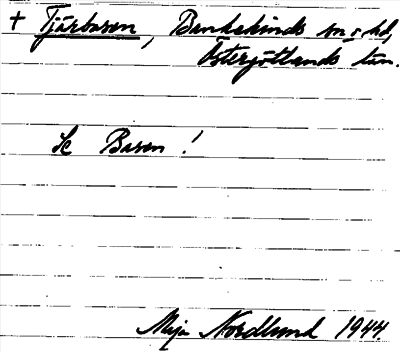 + Tjärbaren, Bankekinds sn o hd,
Östergötlands län.
Se Baren!
Maja Nordlund 1944